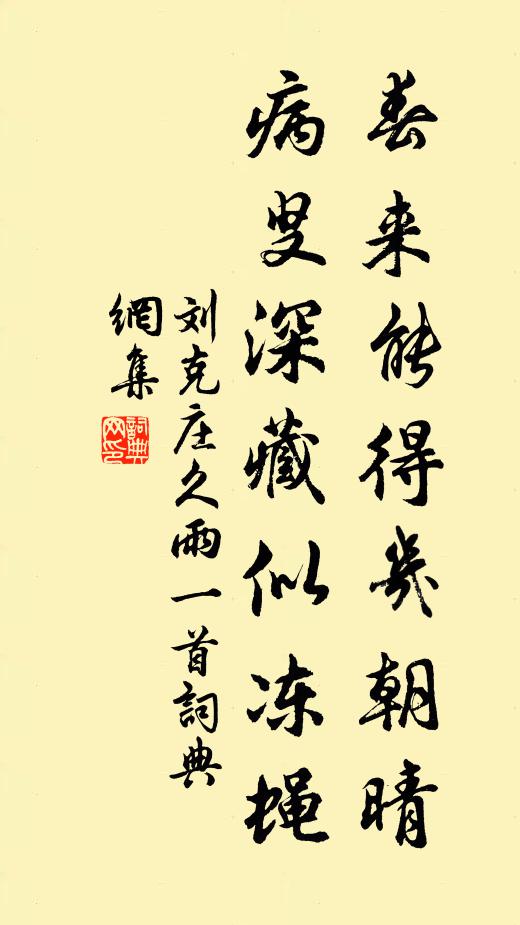 春来能得幾朝晴
病叟深藏似冻蝇
刘克庄久雨一首詞典
網集
詞典
网印